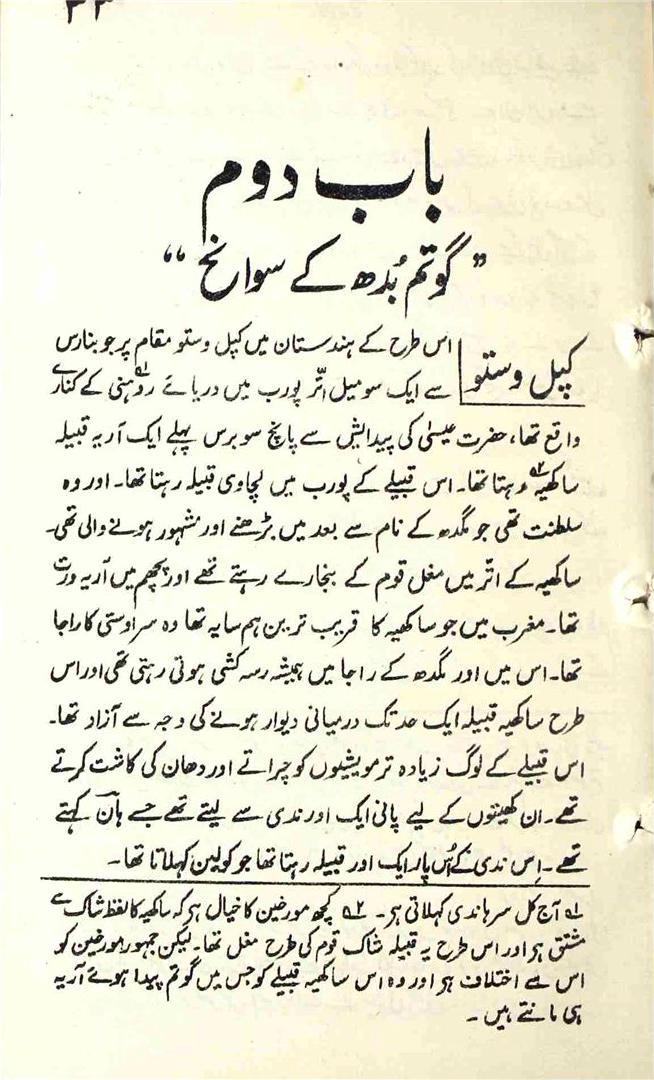 ۳۳
باب دوم
”گوتم بُدھ کے سوانح“
کپل وستو
اس طرح کے ہندستان میں کپل وستو مقام پر جو بنارس
سے ایک سو میل اتّر پورب میں دریائے روہنی۱ کے کنارے
واقع تھا، حضرت عیسیٰ کی پیدایش سے پانچ سو برس پہلے ایک آریہ قبیلہ
ساکھیہ۲ رہتا تھا۔ اس قبیلے کے پورب میں لچاوی قبیلہ رہتا تھا۔ اور وہ
سلطنت تھی جو مگدھ کے نام سے بعد میں بڑھنے اور مشہور ہونے والی تھی۔
ساکھیہ کے اتّر میں مغل قوم کے بنجارے رہتے تھے اور پچھم میں آریہ ورت
تھا۔ مغرب میں جو ساکھیہ کا قریب ترین ہم سایہ تھا وہ سراوستی کا راجا
تھا۔ اس میں اور مگدھ کے راجا میں ہمیشہ رسہ کشی ہوتی رہتی تھی اور اس
طرح ساکھیہ قبیلہ ایک حد تک درمیانی دیوار ہونے کی وجہ سے آزاد تھا۔
اس قبیلے کے لوگ زیادہ تر مویشیوں کو چراتے اور دھان کی کاشت کرتے
تھے۔ ان کھیتوں کے لیے پانی ایک اور ندی سے لیتے تھے جسے بان کہتے
تھے۔ اِس ندی کے اُس پار ایک اور قبیلہ رہتا تھا جو کولین کہلاتا تھا۔
۱ آج کل سرہاندی کہلاتی ہر۔ ۲ کچھ مورخین کا خیال ہر کہ ساکھیہ کا لفظ شاک سے
مشتق ہر اور اس طرح یہ قبیلہ شاک قوم کی طرح مغل تھا۔ لیکن جمہور مورخین کو
اس سے اختلاف ہر اور وہ اس ساکھیہ قبیلے کو جس میں گوتم پیدا ہوئے آریہ
ہی مانتے ہیں۔